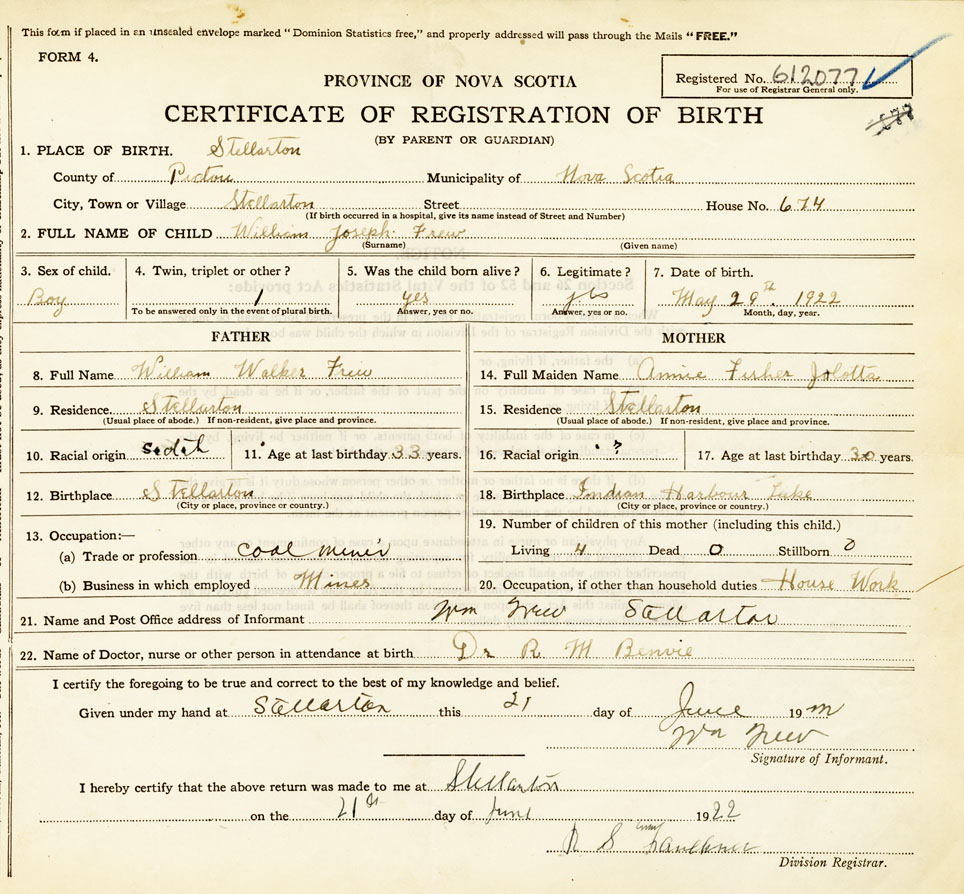 This form if placed in an unsealed envelope marked "Dominion Statistics free," and properly addressed will pass through the Mails "FREE."
FORM 4.
Registered No. 612077
For use of Registrar General only.
PROVINCE OF NOVA SCOTIA
CERTIFICATE OF REGISTRATION OF BIRTH
(BY PARENT OR GUARDIAN)
1. PLACE OF BIRTH. Stellarton
County of Pictou Municipality of Nova Scotia
City, Town or Village Stellarton Street House No. 674
(If birth occurred in a hospital, give its name instead of Street and Number)
2. FULL NAME OF CHILD William Joseph Frew
(Surname) (Given name)
3. Sex of child. 4. Twin, triplet or other? 5. Was the child born alive? 6. Legitimate? 7. Date of birth.
Boy 1 yes yes May 29th. 1922
To be answered only in the event of plural birth. Answer, yes or no. Answer, yes or no. Month, day, year.
FATHER MOTHER
8. Full Name William Walker Frew 14. Full Maiden Name Annie Fisher
9. Residence. Stellarton 15. Residence Stellarton
(Usual place of abode.) If non-resident, give place and province. (Usual place of abode.) If non-resident, give place and province.
10. Racial origin 11. Age at last birthday 33 years. 16. Racial origin ? 17. Age at last birthday 30 years.
12. Birthplace Stellarton 18. Birthplace Indian Harbour Lake
(City or place, province or country.) (City or place, province or country.)
13. Occupation:— 19. Number of children of this mother (including this child.)
(a) Trade or profession coal miner Living 4 Dead 0 Stillborn 0
(b) Business in which employed Mines 20. Occupation, if other than household duties House Work
21. Name and Post Office address of Informant Wm Frew Stellarton
22. Name of Doctor, nurse or other person in attendance at birth Dr R M Benvie
I certify the foregoing to be true and correct to the best of my knowledge and belief.
Given under my hand at Stellarton this 21 day of June 19 22
Wm Frew
Signature of Informant.
I hereby certify that the above return was made to me at Stellarton
on the 21st day of June 1922
R S Faulkner
Division Registrar.